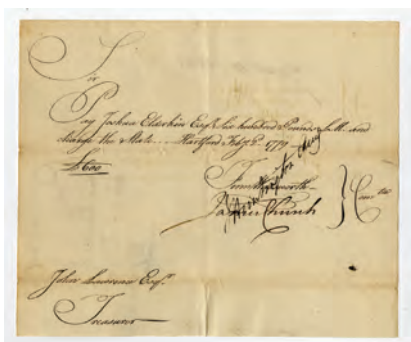 Sir
Pay Joshua Elderkin Esqr. Six hundred Pounds L.M. and
charge the State. Hartford Feby. 8. 1779
£600
James Church
Comtee
John Lawrence Esqr.
Treasurer